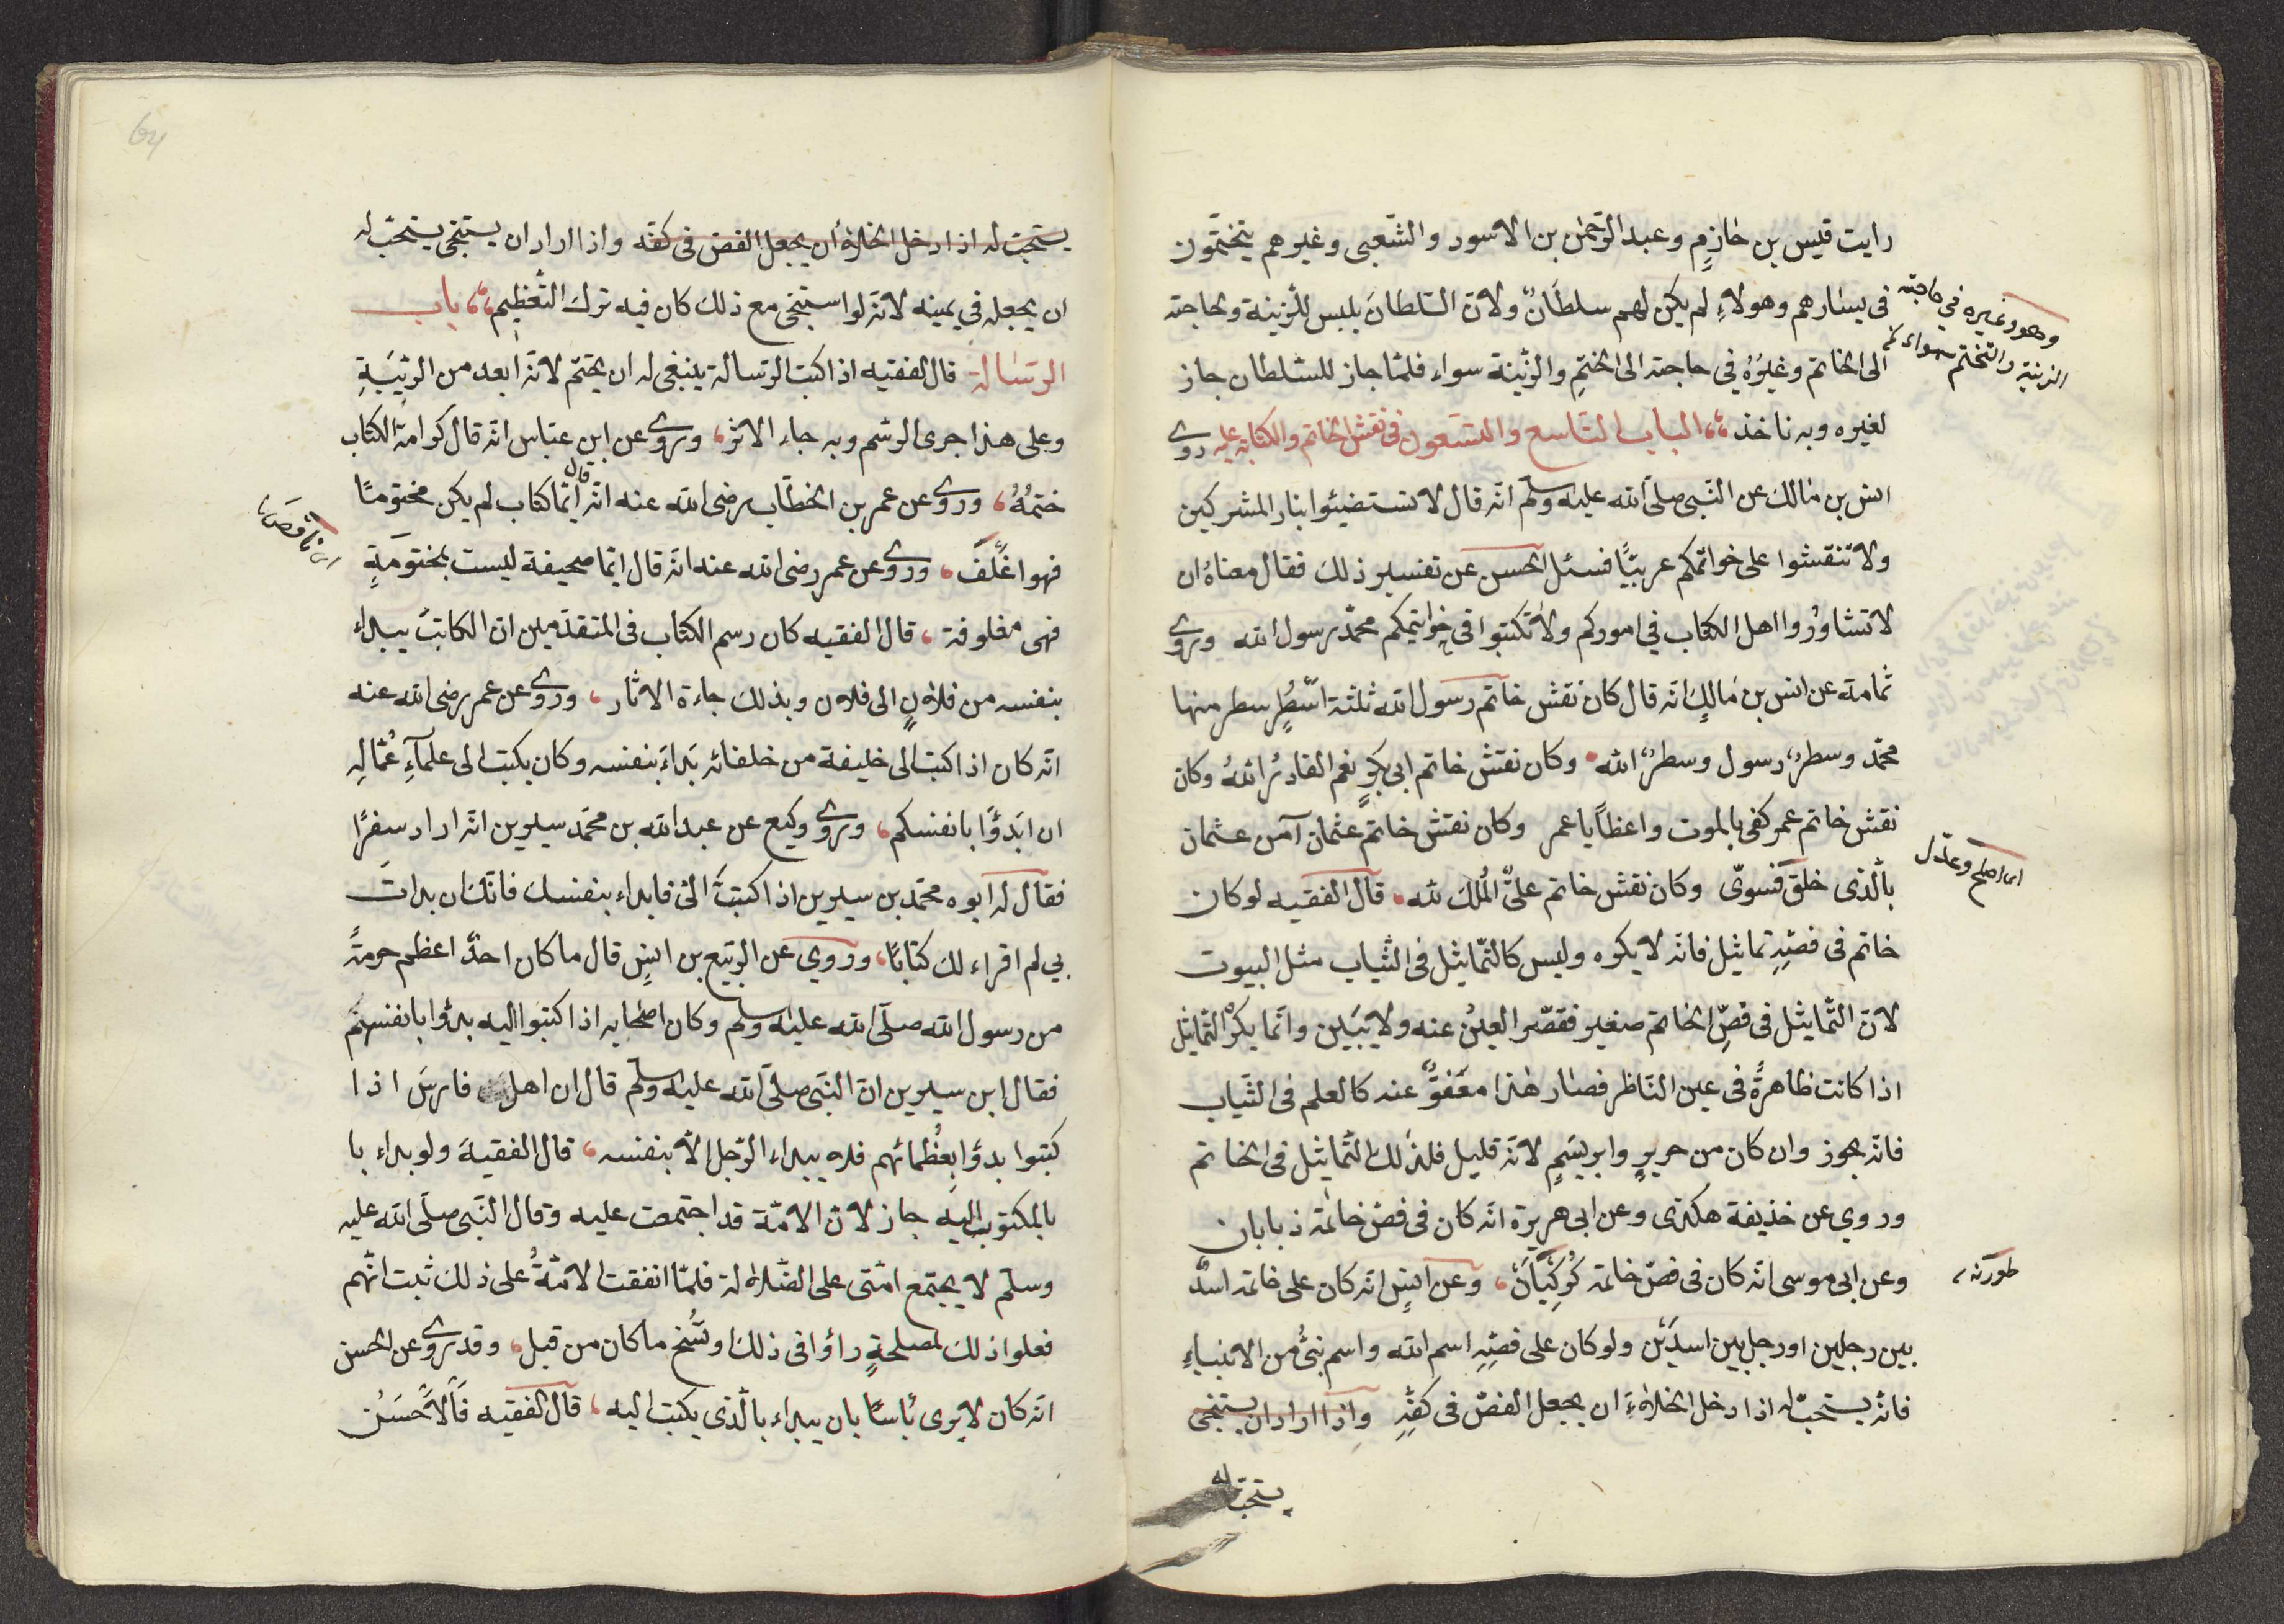 رايت قيس بن خازم وعبد الرّحمٰن بن الاسود والشّعبى وغيرهم يتختّمون
فى يسٰارهم وهولاءِ لم يكن لهم سلطانٌ ولانّ السّلطانَ يلبس للزّينة ولحاجته
وهو وغيره في حاجته
الزينة والتختم سواء
الى الخاتم وغيرُهُ في حاجته الى الختمِ والزّينة سواء فلمّا جاز للسّلطان جاز
لغيره وبه ناخذ الباب التاسع والتسعون فى نقش الخاتم والكتابة عليه روى
انس بن مٰالك عن النّبى صلّى الله عليه وسلّم انّه قال لا تستضيئوا بنار المشركين
ولا تنقشوا على خواتمكم عربيّاً فسئل الحسن عن تفسير ذلك فقال معناهُ ان
لا تشاورُوا اهل الكتاب في اموركم ولا تكتبوا فى خواتيمكم محمّد رسول الله وروى
ثمامة عن انس بن مٰالكٍ انّه قال كان نقش خاتم رسول الله ثلثة اسطُرٍ سطر منها
محمّد وسطرٌ رسول وسطرٌ الله وكان نقش خاتم ابى بكرٍ نعم القادرُ اللهُ وكان
نقش خاتم عمر كفى بالموت واعظاً يا عمر وكان نقش خاتم عثمان آمن عشمان
بالّذى خلق فسوّى وكان نقش خاتم علىّ المُلك لله قال الفقيه لو كان
اى اصلح وعدّل
خاتم فى فصّهِ تماثيل فانّه لا يكره وليس كالتّماثيل فى الثّياب مثل البيوت
لانّ التّماثيل فى فصِّ الخاتم صغير فقصّر العينُ عنه ولا يتبين وانّما يكره التّماثيل
اذا كانت ظاهرةً فى عين النّاظر فصٰار هٰذا معفوٌّ عنه كالعلم فى الثّياب
فانّه يجوز وان كان من حريرٍ وابريسَمٍ لانّه قليل فلذٰلك التّماثيل فى الخاتم
وروي عن خذيفة هكذى وعن ابى هريرة انّه كان فى فصّ خاتمه ذبابان
وعن ابى موسى انّه كان فى فصّ خاتمه كُركيّان وعن انسٍ انّه كان على خاتمه اسدٌ
طورنه
بين رجلين او رجل بين اسدَين ولو كان على فصّهِ اسم الله واسم نبىٍّ من الانبياءِ
فانّه يستحبّ له اذا دخل الخلاءَ ان يجعل الفصّ فى كفّهِ واذا اراد ان يستنجى
يستحبّ له
يستحبّ له اذا دخل الخلاء أن يجعل الفصّ فى كفّه واذا اراد ان يستنجى يستحبّ له
ان يجعله في يمينه لانّه لو استنجى مع ذلك كان فيه ترك التّعظيم باب
الرّسٰالة قال الفقيه اذا كتب الرّسالة ينبغى له ان يختم لانّه ابعد من الرّيبَةِ
وعلى هذا جرى الرّسم وبه جاء الاثر وروى عن ابن عبّاس انّه قال كرامة الكتاب
ختمُهُ وروى عن عمر بن الخطّاب رضى الله عنه انّه قال ايّما كتاب لم يكن مختومًا
فهو اغلف وروى عن عمر رضى الله عنه انّه قال ايّما صحيفة ليست بمختومَةٍ
اى ناقصة
فهى مغلوفة قال الفقيه كان رسم الكتاب فى المتقدّمين انّ الكاتب يبداء
بنفسه من فلانٍ الى فلان وبذلك جاءة الاثار وروى عن عمر رضى الله عنه
انّه كان اذا كتب الى خليفة من خلفائه بَداءَ بنفسه وكان يكتب الى علمآءِ عُمّالِهِ
ان ابَدؤا بانفسكم وروى وكيع عن عبد الله بن محمّد سيرين انّه اراد سفرًا
فقال له ابوه محمّد بن سيرين اذا كتبتَ الىّ فابداء بنفسك فانّك ان بدات
بي لم اقراء لك كتابًا وروي عن الرّبيع بن انسٍ قال ما كان احدٌ اعظم حرمةً
من رسول الله صلّى الله عليه وسلّم وكان اصحٰابه اذا كتبوا اليه بدؤا بانفسهم
فقال ابن سيرين انّ النّبى صلّى الله عليه وسلّم قال ان اهل فارسَ اذا
كتبوا بدؤا بعُظَمائهم فلا يبداء الرّجل الّا بنفسه قال الفقيهَ ولو بداء با
بالمكتوب اليه جاز لانّ الامّة قد اجتمعت عليه وقال النّبى صلّى الله عليه
وسلّم لا يجتمع امّتى على الضّلالة فلمّا اتفقت الامّةُ على ذلك ثبت انّهم
فعلوا ذلك لمصلحةٍ راؤا فى ذلك ونُسخ ما كان من قبل وقد روى عن الحسن
انّه كان لا يرى بأسًا بان يبداء بالّذى يكتب اليه قال الفقيه فَالاَحسَن